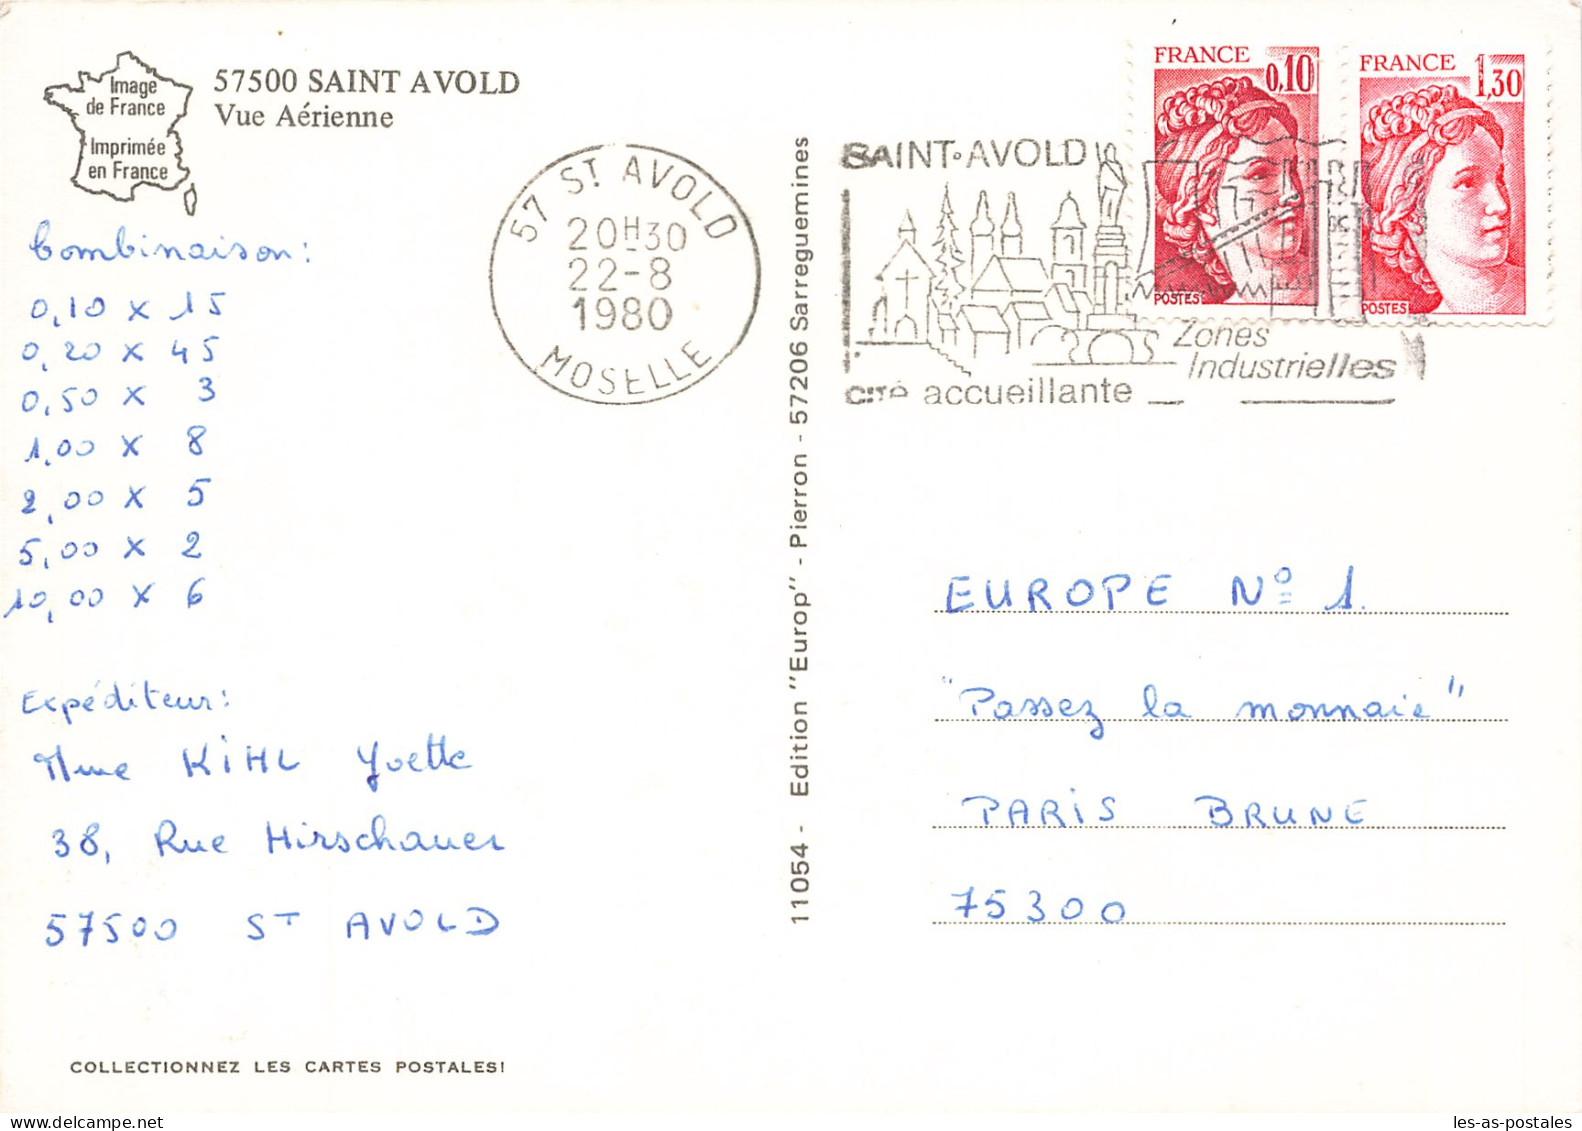 Image
de France
Imprimée
en France
57500 SAINT AVOLD
Vue Aérienne
Combinaison:
0,10 x 15
0,20 x 45
0,50 x 3
1,00 x 8
2,00 x 5
5,00 x 2
10,00 x 6
Expéditeur:
Mme KIHL Yvette
38, Rue Hirschauer
57500 ST AVOLD
COLLECTIONNEZ LES CARTES POSTALES!
57 ST AVOLD
20H30
22-8
1980
MOSELLE
11054 - Edition "Europ" - Pierron - 57206 Sarreguemines
SAINT·AVOLD
Zones
Industrielles
Cité accueillante
FRANCE
0,10
POSTES
FRANCE
1,30
POSTES
EUROPE Nº 1.
"Passez la monnaie"
PARIS BRUNE
75300
les-as-postales